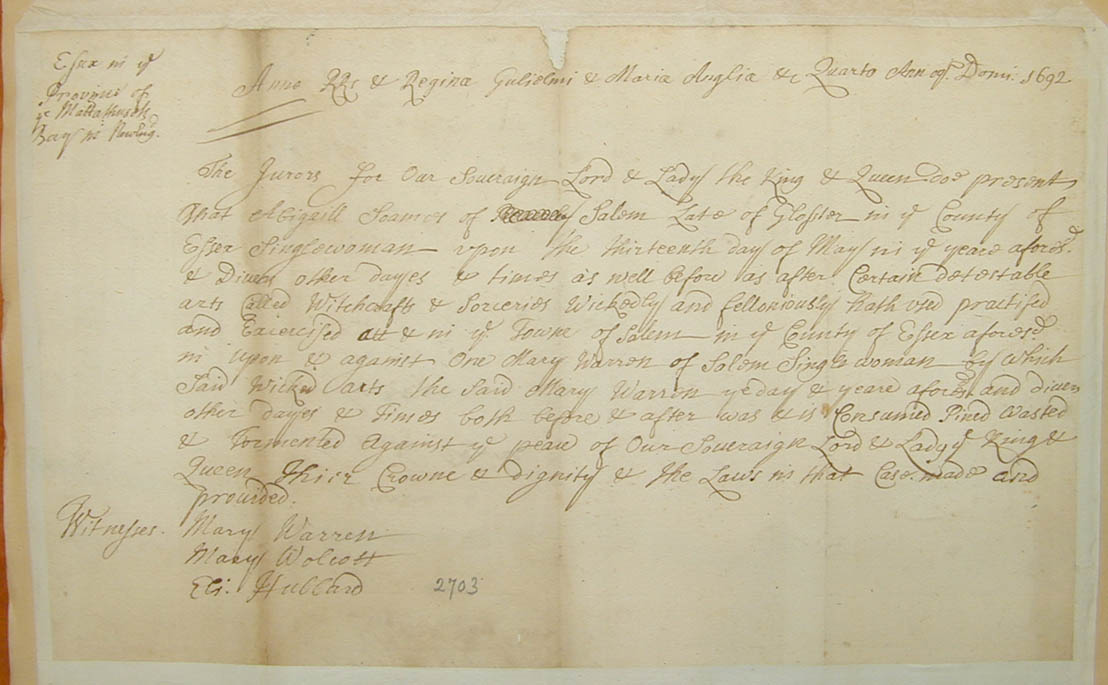 Essex in ye
Province of
ye Mattathusets
Bay in NewEng.
Anno RRs & Reginæ Gulielmi & Mariæ Angliæ &c Quarto Annoq. Domi: 1692
The Jurors for Our Soveraign Lord & Lady the King & Queen doe present
That Abigaill Soames of Salem Late of Gloster in ye County of
Essex Singlewoman upon the thirteenth day of May in ye yeare aforesd.
& Divers other dayes & times as well before as after Certain detestable
arts called Witchcrafts & Sorceries Wickedly and felloniously hath vsed practised
and Exercised att & in ye Towne of Salem in ye County of Essex aforesd.
in Upon & against One Mary Warren of Salem Single woman by which
Said Wicked arts the Said Mary Warren ye day & yeare aforesd and divers
other dayes & times both before & after was & is Consumed Pined Wasted
& Tormented Against ye peace of Our Soveraign Lord & Lady ye King &
Queen Thier Crowne & dignity & the Laws in that Case made and
provided.
Witnesses. Mary Warren
Mary Wolcott
Eli. Hubbard 2703